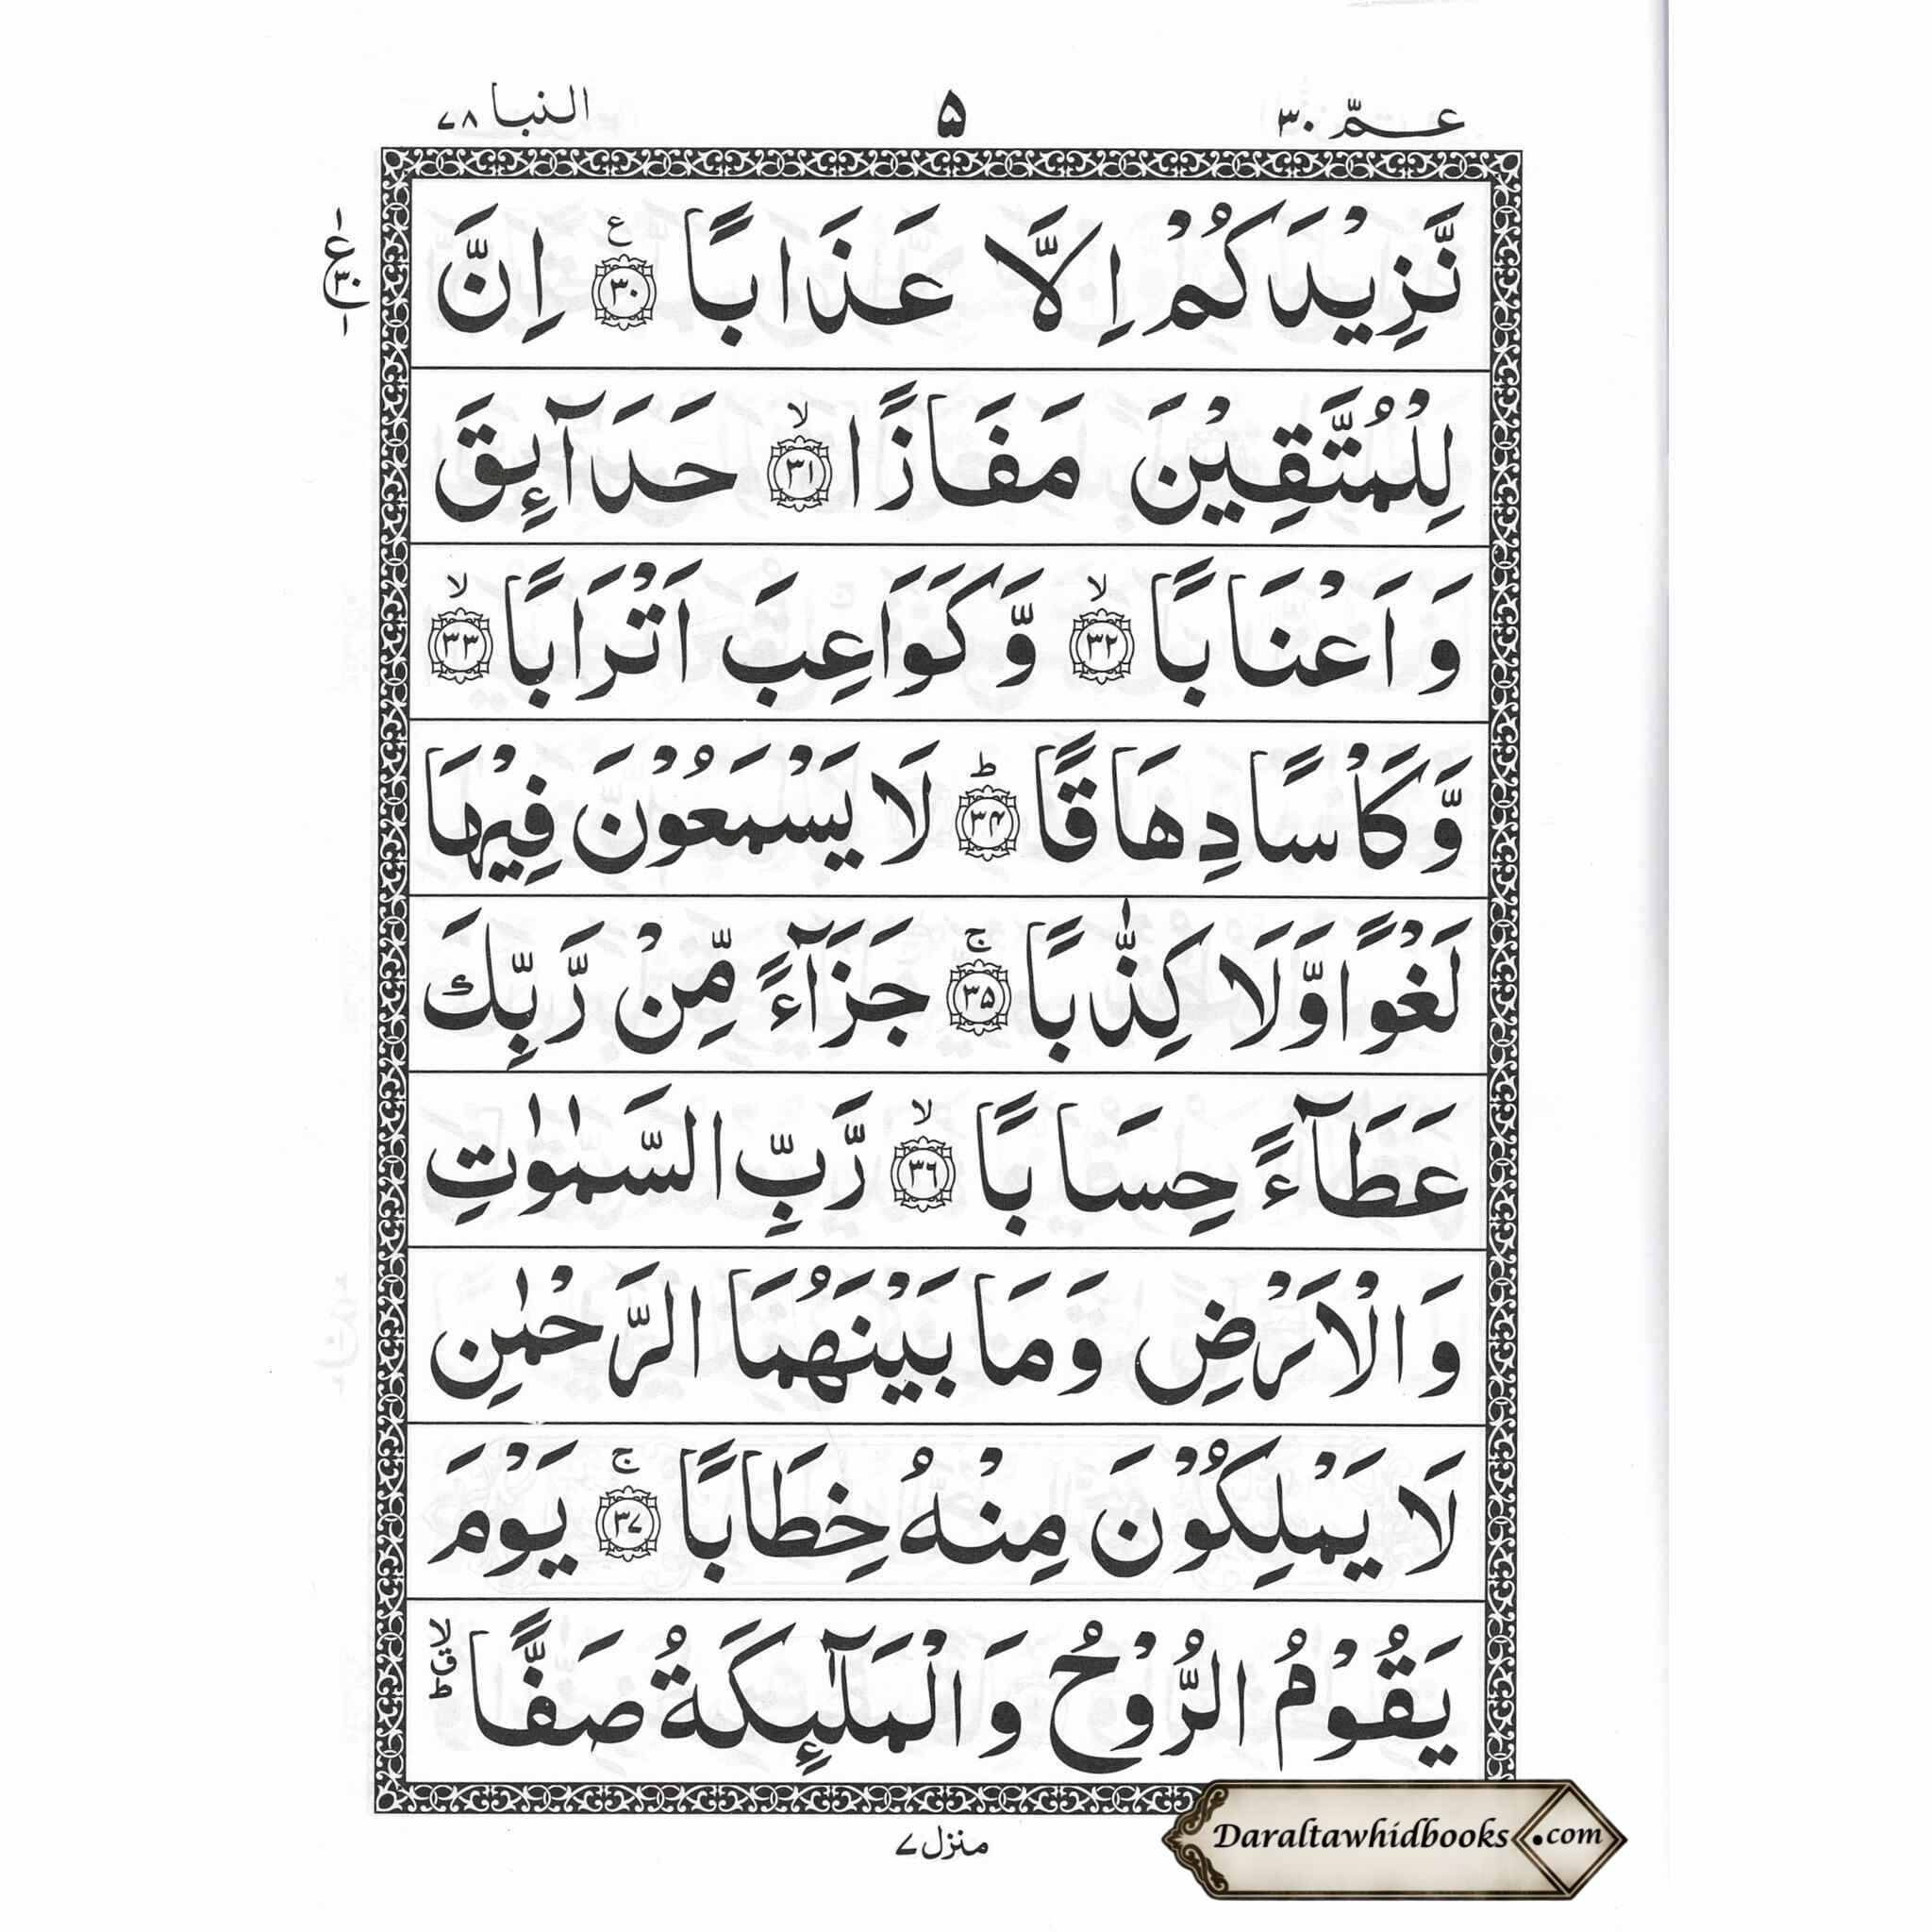 عـمّ ٣٠
۵
النبا ٧٨
نَّزِيْدَكُمْ اِلَّا عَذَابًا ۝٣٠ ع اِنَّ
١ ع ٣٠ ١
لِلْمُتَّقِيْنَ مَفَازًا ۝٣١ لا حَدَآئِقَ
وَاَعْنَابًا ۝٣٢ لا وَّكَوَاعِبَ اَتْرَابًا ۝٣٣ لا
وَّكَاْسًا دِهَاقًا ۝٣۴ ط لَا يَسْمَعُوْنَ فِيْهَا
لَغْوًا وَّلَا كِذّٰبًا ۝٣۵ ج جَزَآءً مِّنْ رَّبِّكَ
عَطَآءً حِسَابًا ۝٣٦ لا رَّبِّ السَّمٰوٰتِ
وَالْاَرْضِ وَمَا بَيْنَهُمَا الرَّحْمٰنِ
لَا يَمْلِكُوْنَ مِنْهُ خِطَابًا ۝٣٧ ج يَوْمَ
يَقُوْمُ الرُّوْحُ وَالْمَلٰٓئِكَةُ صَفًّا لا ق ط
منزل ٧
Daraltawhidbooks.com